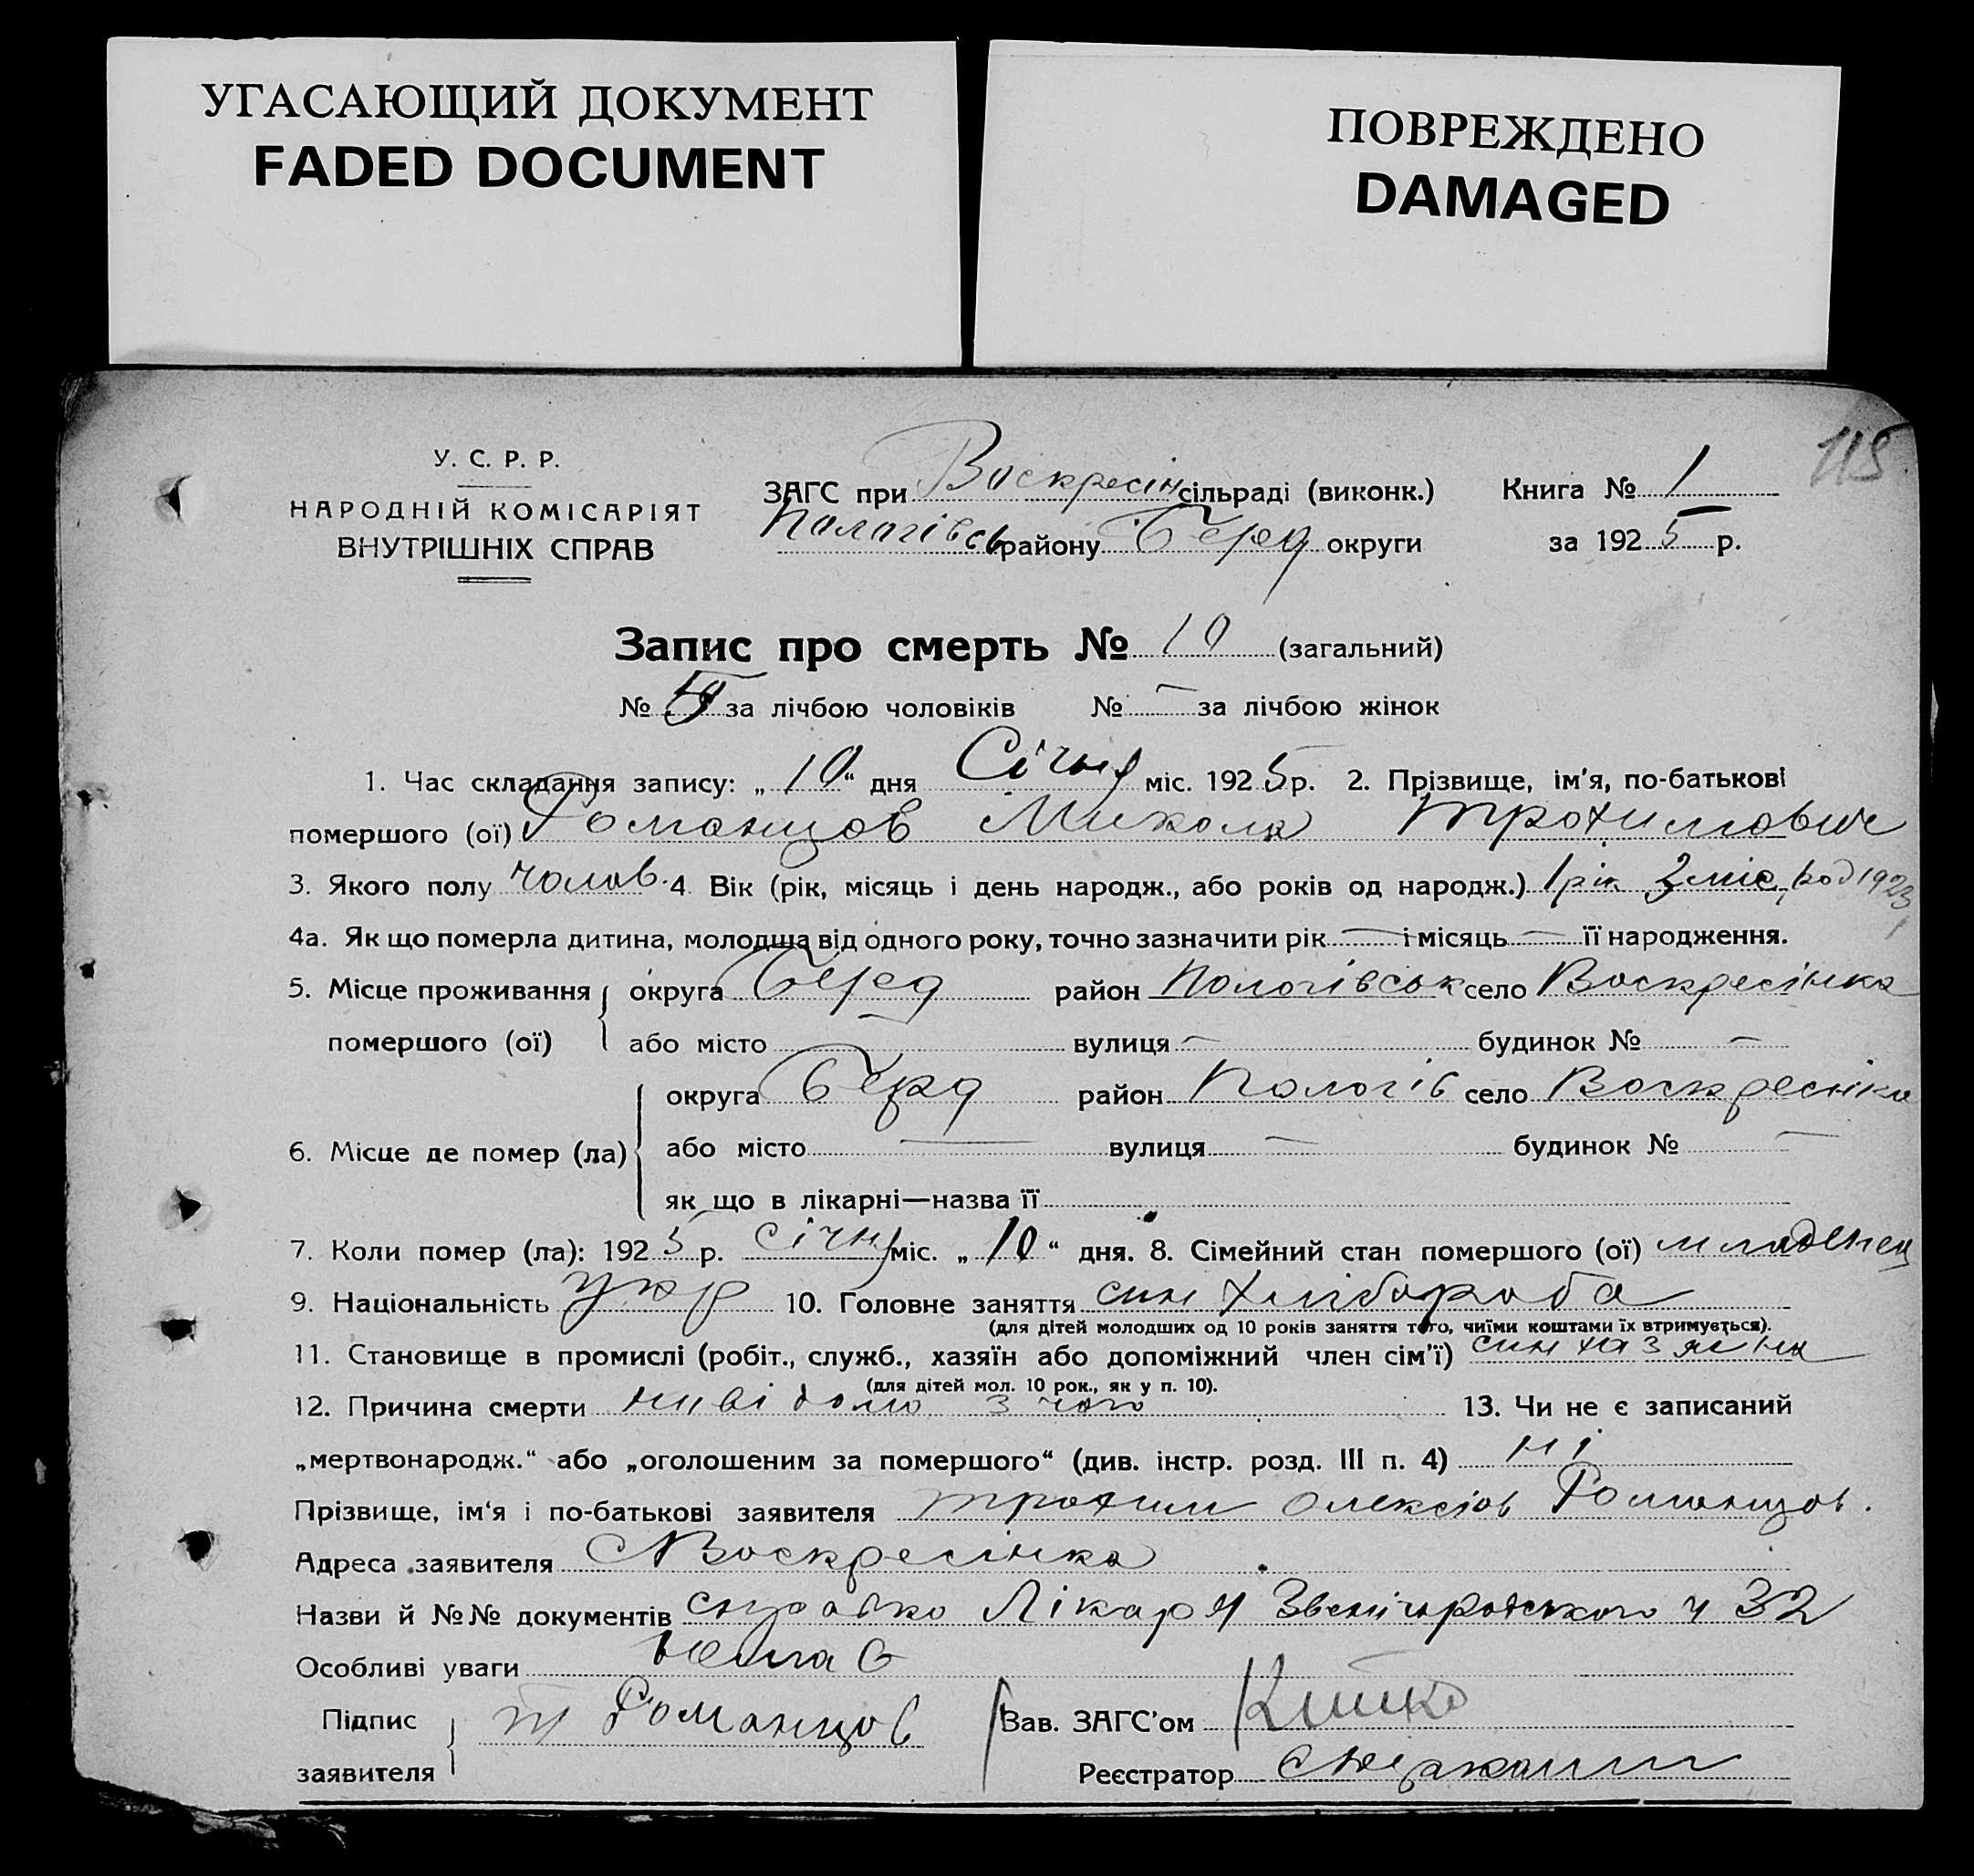 УГАСАЮЩИЙ ДОКУМЕНТ
FADED DOCUMENT
ПОВРЕЖДЕНО
DAMAGED
115
У. С. Р. Р.
НАРОДНІЙ КОМІСАРІЯТ
ВНУТРІШНІХ СПРАВ
ЗАГС при Воскресін сільраді (виконк.) Книга № 1
Пологівсь району Беред округи за 1925 р.
Запис про смерть № 10 (загальний)
№ за лічбою чоловіків № — за лічбою жінок
1. Час складання запису: „10“ дня Січня міс. 1925 р. 2. Прізвище, ім'я, по-батькові
помершого (ої) Романцов Микола Трохимович
3. Якого полу чолов. 4 Вік (рік, місяць і день народж., або років од народж.) 1 рік 2 міс, род 1923
4а. Як що померла дитина, молодша від одного року, точно зазначити рік — і місяць — її народження.
5. Місце проживання округа Беред район Пологівськ село Воскресінка
помершого (ої) або місто — вулиця — будинок № —
округа Берд район Пологів село Воскресінка
6. Місце де помер (ла) або місто — вулиця — будинок № —
як що в лікарні—назва її
7. Коли помер (ла): 1925 р. січня міс. „10“ дня. 8. Сімейний стан помершого (ої) младенец
9. Національність укр 10. Головне заняття син хлібороба
(для дітей молодших од 10 років заняття того, чиїми коштами їх втримується).
11. Становище в промислі (робіт., служб., хазяїн або допоміжний член сім'ї) син хазяїна
(для дітей мол. 10 рок., як у п. 10).
12. Причина смерти нивідомо з чого 13. Чи не є записаний
„мертвонародж.“ або „оголошеним за помершого“ (див. інстр. розд. III п. 4) ні
Прізвище, ім'я і по-батькові заявителя Трохим Олексіов Романцов.
Адреса заявителя Воскресінка
Назви й №№ документів справко Лікаря Звенігородського ч 32
Особливі уваги
Підпис Т Романцов Вав. ЗАГС'ом
заявителя Реєстратор